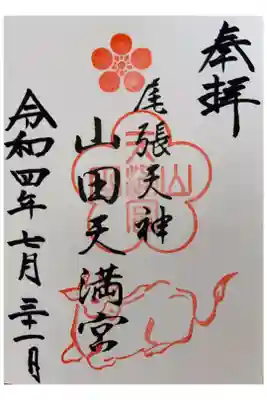 奉拝
尾張天神
山田天満宮
令和四年七月三十一日